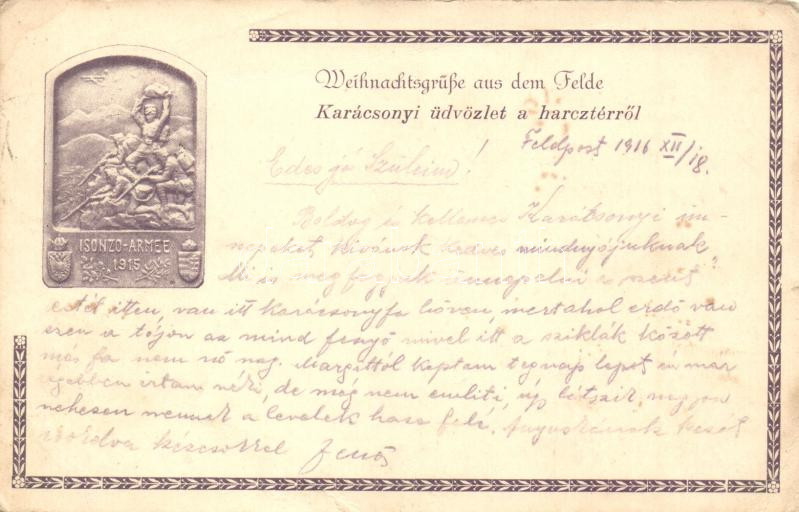 Weihnachtsgrüße aus dem Felde
Karácsonyi üdvözlet a harcztérről
ISONZO-ARMEE
1915
Feldpost 1916 XII/18.
Edes jó Szüleim!
Boldog és kellemes Karátsonyi ün-
nepeket kivánok kedves mindnyájuknak
Mi is megfogjuk ünnepelni a szent
estét itten, van itt karácsonyfa bőven, mert ahol erdő van
ezen a tájon az mind fenyő mivel itt a sziklák között
más fa nem nő nag. Margittól kaptam tegnap lapot én már
régebben irtam néki, de még nem emliti, úgy látszik nagyon
nehezen mennek a levelek haza felé.
kézcsokkal Jenő